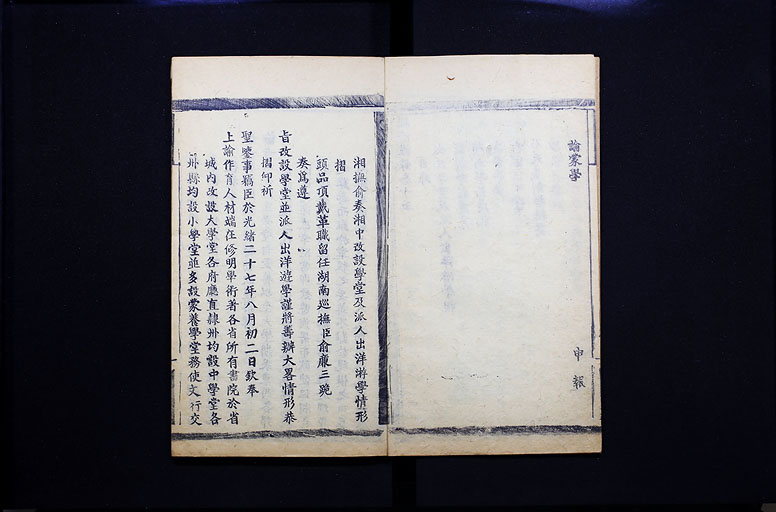 論蒙學
申報
湘撫俞奏湘中改設學堂及派人出洋游學情形
摺
頭品頂戴革職留任湖南巡撫臣俞廉三跪
奏爲遵
旨改設學堂並派人出洋游學謹將籌辦大畧情形恭
摺仰祈
聖鑒事竊臣於光緒二十七年八月初二日欽奉
上諭作育人材端在修明學術著各省所有書院於省
城內改設大學堂各府廳直隸州均設中學堂各
州縣均設小學堂並多設蒙養學堂務使文行交